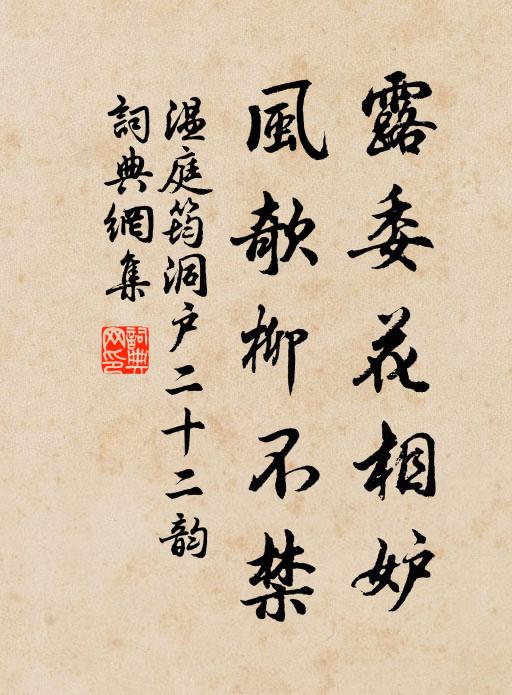 露委花相妒
風欹柳不禁
溫庭筠洞户二十二韵
詞典網集
詞典网印